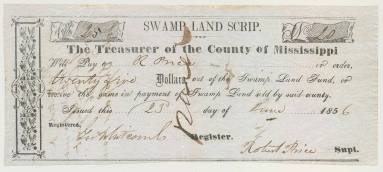 25 SWAMP LAND SCRIP. 
The Treasurer of the County of Mississippi
Will Pay R Price or order,
twenty five Dollars out of the Swamp Land Fund, or
receive the same in payment of Swamp Land sold by said county.
Issued this 25 day of June 1856
Registered,
Register.
Robert Price Supt.